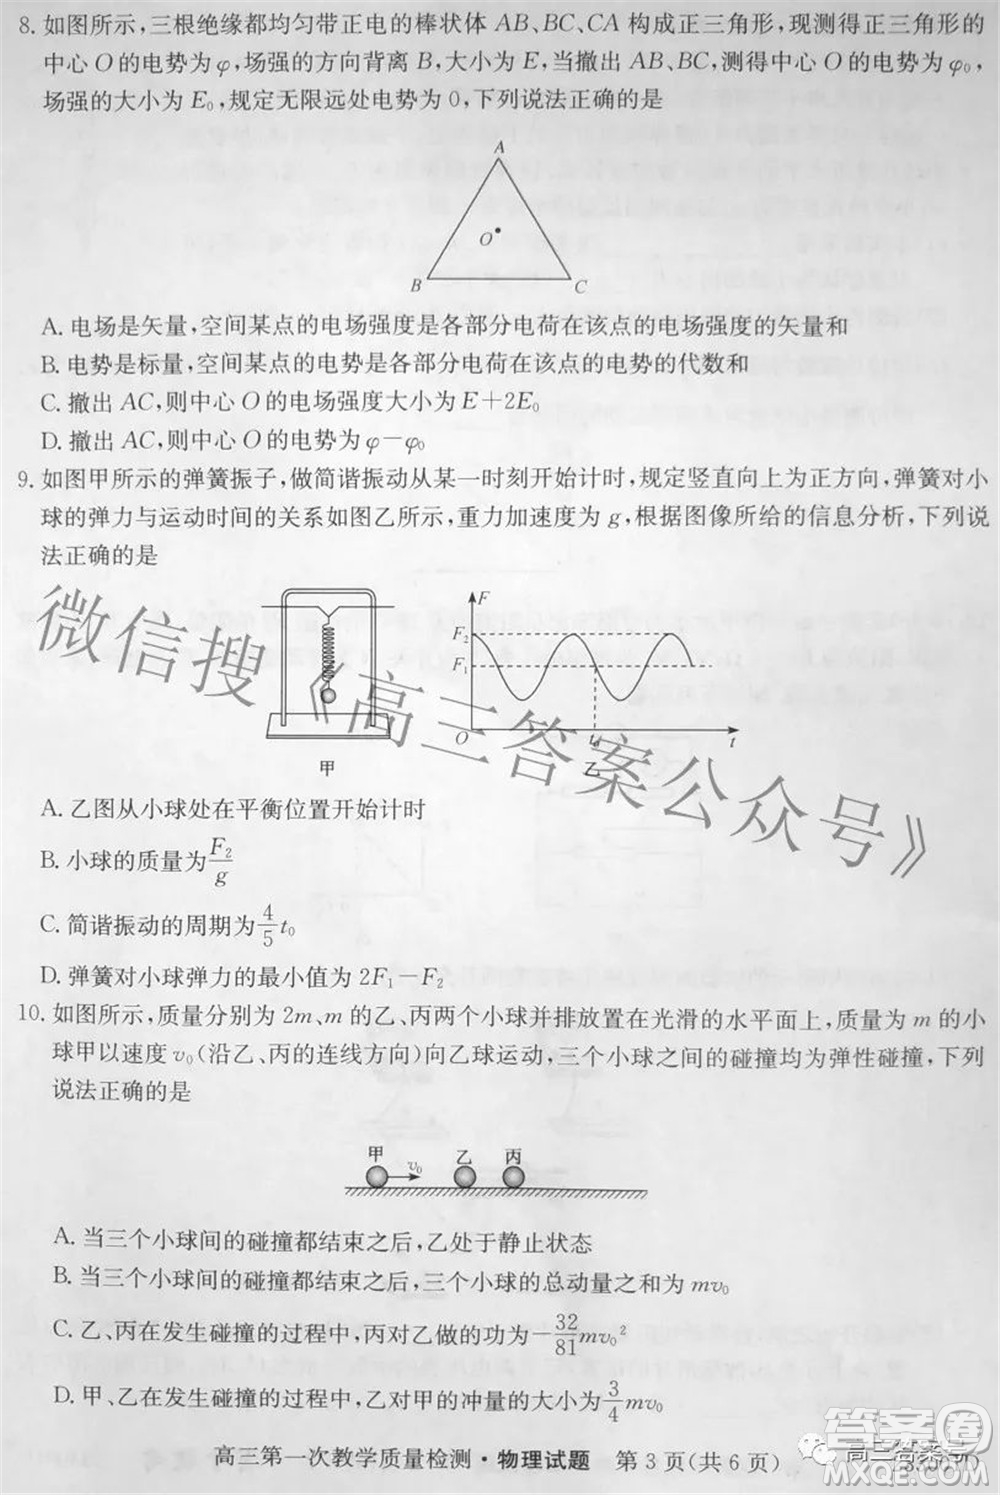 8. 如图所示,三根绝缘都均匀带正电的棒状体 AB、BC、CA 构成正三角形,现测得正三角形的
中心 O 的电势为 φ,场强的方向背离 B,大小为 E,当撤出 AB、BC,测得中心 O 的电势为 φ₀,
场强的大小为 E₀,规定无限远处电势为 0,下列说法正确的是
A
O
B
C
A. 电场是矢量,空间某点的电场强度是各部分电荷在该点的电场强度的矢量和
B. 电势是标量,空间某点的电势是各部分电荷在该点的电势的代数和
C. 撤出 AC,则中心 O 的电场强度大小为 E+2E₀
D. 撤出 AC,则中心 O 的电势为 φ-φ₀
9. 如图甲所示的弹簧振子,做简谐振动从某一时刻开始计时,规定竖直向上为正方向,弹簧对小
球的弹力与运动时间的关系如图乙所示,重力加速度为 g,根据图像所给的信息分析,下列说
法正确的是
F
F₂
F₁
O
t₀
t
甲
乙
A. 乙图从小球处在平衡位置开始计时
B. 小球的质量为F₂/g
C. 简谐振动的周期为4/5 t₀
D. 弹簧对小球弹力的最小值为 2F₁-F₂
10. 如图所示,质量分别为 2m、m 的乙、丙两个小球并排放置在光滑的水平面上,质量为 m 的小
球甲以速度 v₀(沿乙、丙的连线方向)向乙球运动,三个小球间的碰撞均为弹性碰撞,下列
说法正确的是
甲
v₀
乙
丙
A. 当三个小球间的碰撞都结束之后,乙处于静止状态
B. 当三个小球间的碰撞都结束之后,三个小球的总动量之和为 mv₀
C. 乙、丙在发生碰撞的过程中,丙对乙做的功为-32/81 mv₀²
D. 甲、乙在发生碰撞的过程中,乙对甲的冲量的大小为3/4 mv₀
高三第一次教学质量检测·物理试题 第 3 页(共 6 页)
微信搜《高三答案公众号》